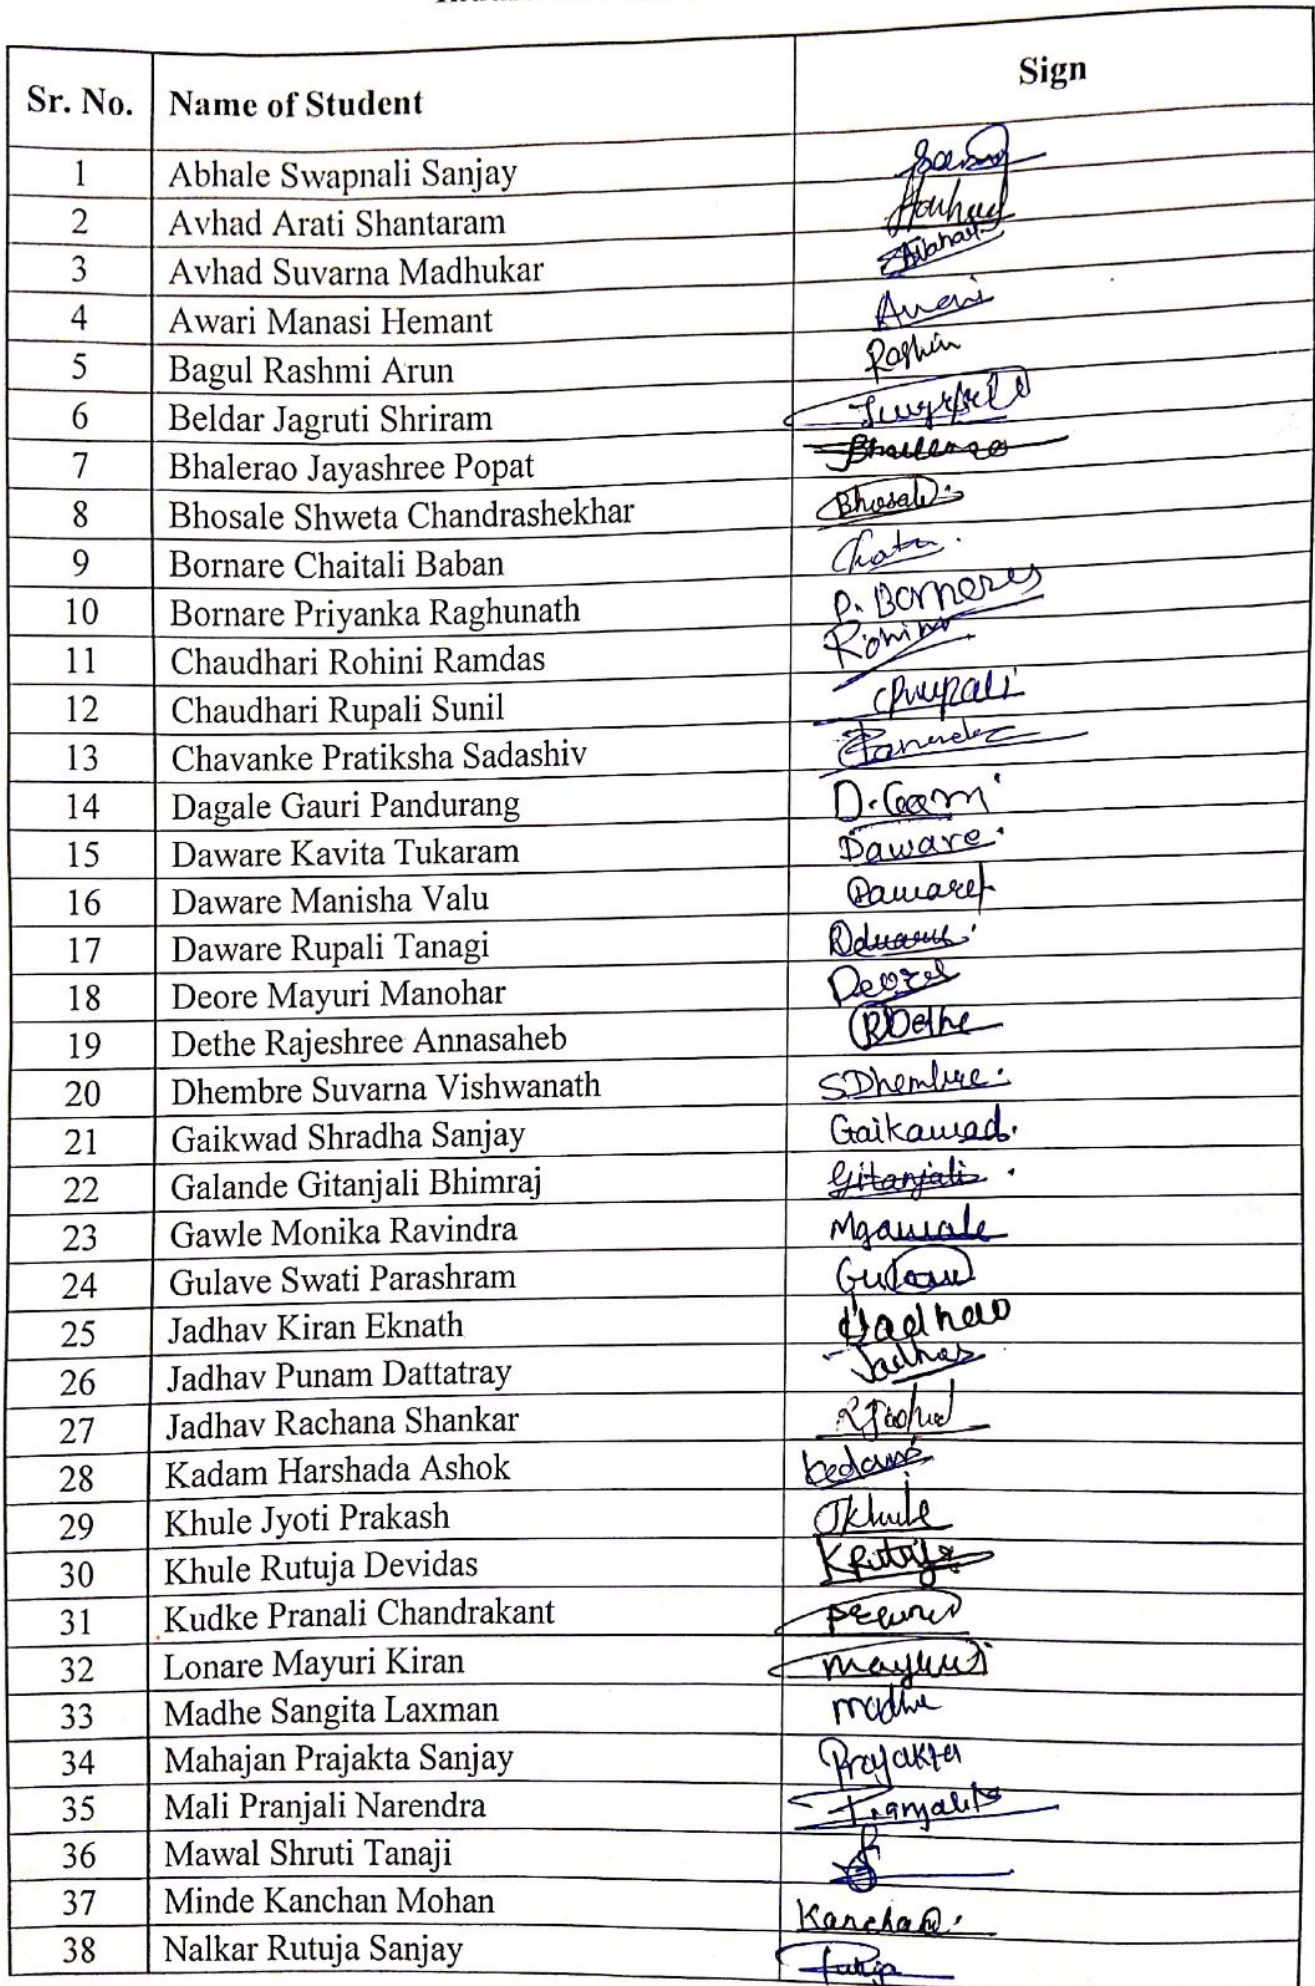 Sr. No. Name of Student Sign
1 Abhale Swapnali Sanjay
2 Avhad Arati Shantaram
3 Avhad Suvarna Madhukar
4 Awari Manasi Hemant
5 Bagul Rashmi Arun
6 Beldar Jagruti Shriram
7 Bhalerao Jayashree Popat
8 Bhosale Shweta Chandrashekhar Bhosale
9 Bornare Chaitali Baban
10 Bornare Priyanka Raghunath
11 Chaudhari Rohini Ramdas Rohini
12 Chaudhari Rupali Sunil
13 Chavanke Pratiksha Sadashiv
14 Dagale Gauri Pandurang
15 Daware Kavita Tukaram Daware.
16 Daware Manisha Valu
17 Daware Rupali Tanagi
18 Deore Mayuri Manohar Deore
19 Dethe Rajeshree Annasaheb RDethe
20 Dhembre Suvarna Vishwanath SDhembre.
21 Gaikwad Shradha Sanjay Gaikawad.
22 Galande Gitanjali Bhimraj Gitanjali.
23 Gawle Monika Ravindra Mgawale
24 Gulave Swati Parashram
25 Jadhav Kiran Eknath
26 Jadhav Punam Dattatray Jadhav
27 Jadhav Rachana Shankar
28 Kadam Harshada Ashok
29 Khule Jyoti Prakash JKhule
30 Khule Rutuja Devidas KRutuja
31 Kudke Pranali Chandrakant
32 Lonare Mayuri Kiran Mayuri
33 Madhe Sangita Laxman Madhe
34 Mahajan Prajakta Sanjay Prajakta
35 Mali Pranjali Narendra Pranjali
36 Mawal Shruti Tanaji
37 Minde Kanchan Mohan Kanchan.
38 Nalkar Rutuja Sanjay